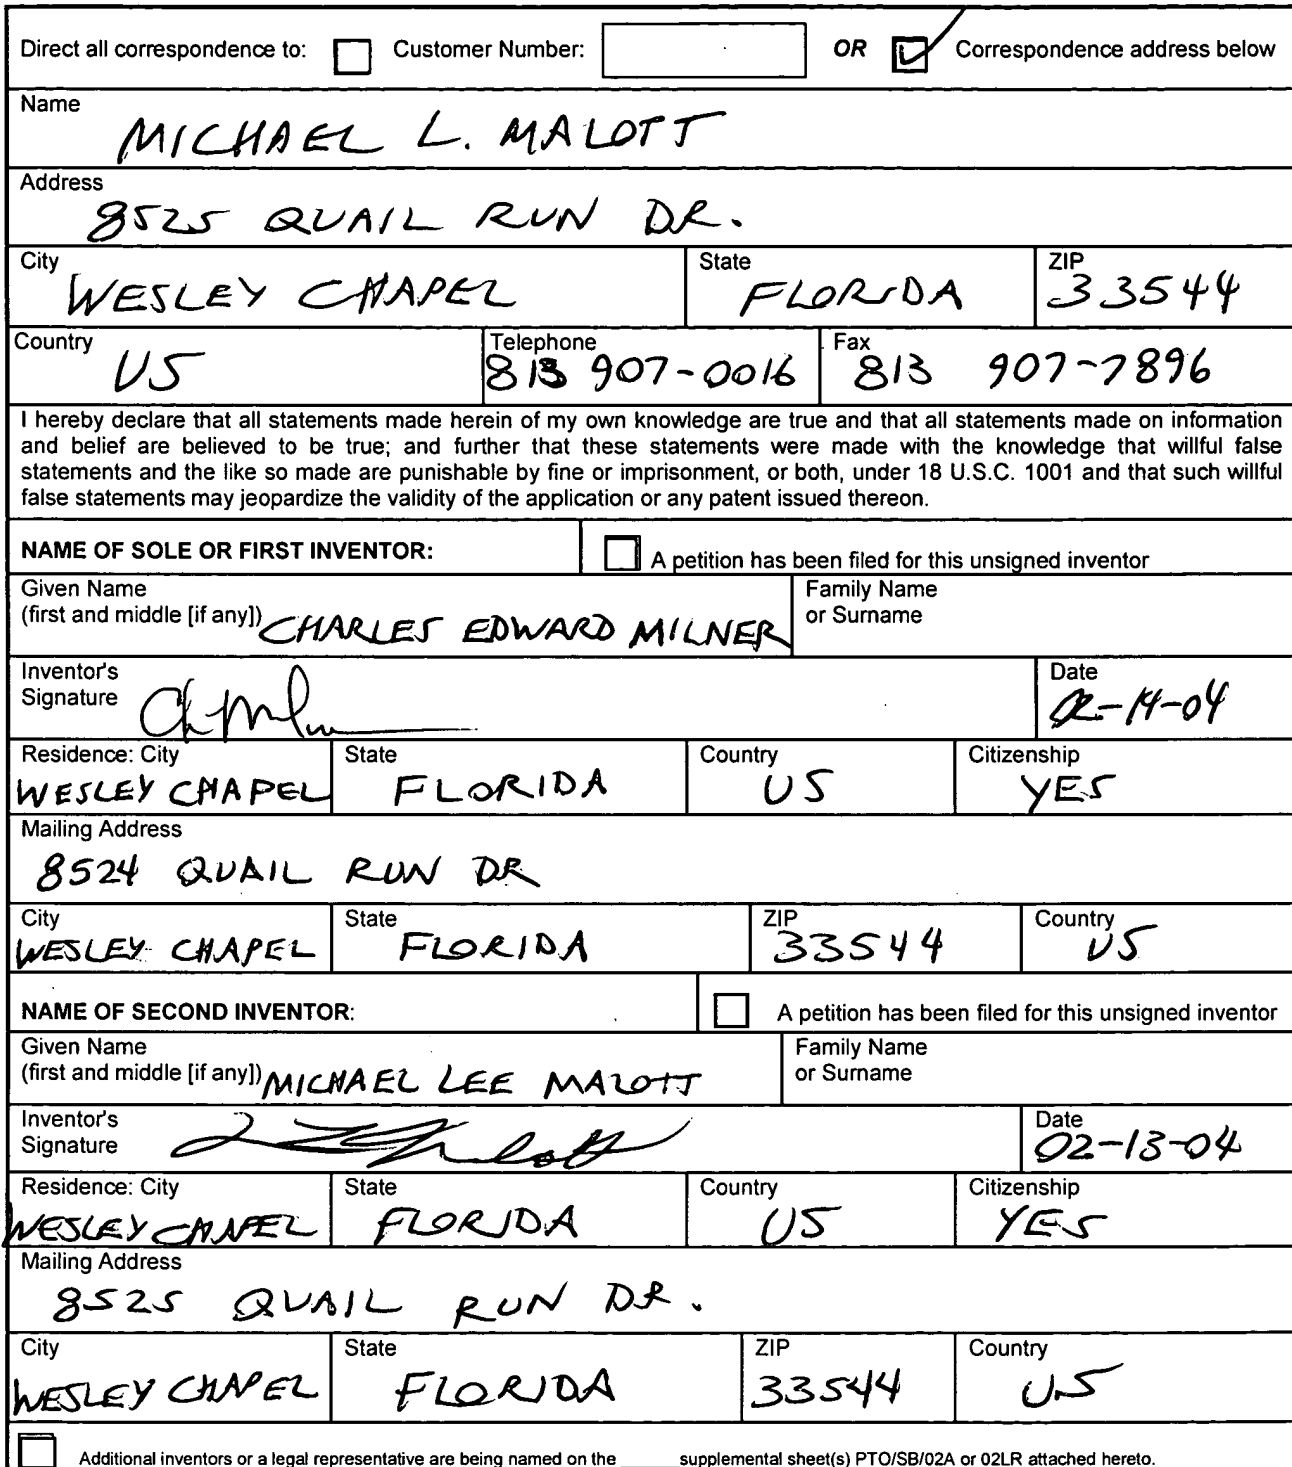 Direct all correspondence to: Customer Number: OR Correspondence address below
Name
MICHAEL L. MALOTT
Address
8525 QUAIL RUN DR.
City State ZIP
WESLEY CHAPEL FLORIDA 33544
Country Telephone Fax
US 813 907-0016 813 907-7896
I hereby declare that all statements made herein of my own knowledge are true and that all statements made on information
and belief are believed to be true; and further that these statements were made with the knowledge that willful false
statements and the like so made are punishable by fine or imprisonment, or both, under 18 U.S.C. 1001 and that such willful
false statements may jeopardize the validity of the application or any patent issued thereon.
NAME OF SOLE OR FIRST INVENTOR: A petition has been filed for this unsigned inventor
Given Name Family Name
(first and middle [if any]) CHARLES EDWARD MILNER or Surname
Inventor's Date
Signature 02-14-04
Residence: City State Country Citizenship
WESLEY CHAPEL FLORIDA US YES
Mailing Address
8524 QUAIL RUN DR
City State ZIP Country
WESLEY CHAPEL FLORIDA 33544 US
NAME OF SECOND INVENTOR: A petition has been filed for this unsigned inventor
Given Name Family Name
(first and middle [if any]) MICHAEL LEE MALOTT or Surname
Inventor's Date
Signature 02-13-04
Residence: City State Country Citizenship
WESLEY CHAPEL FLORIDA US YES
Mailing Address
8525 QUAIL RUN DR.
City State ZIP Country
WESLEY CHAPEL FLORIDA 33544 US
Additional inventors or a legal representative are being named on the ______ supplemental sheet(s) PTO/SB/02A or 02LR attached hereto.